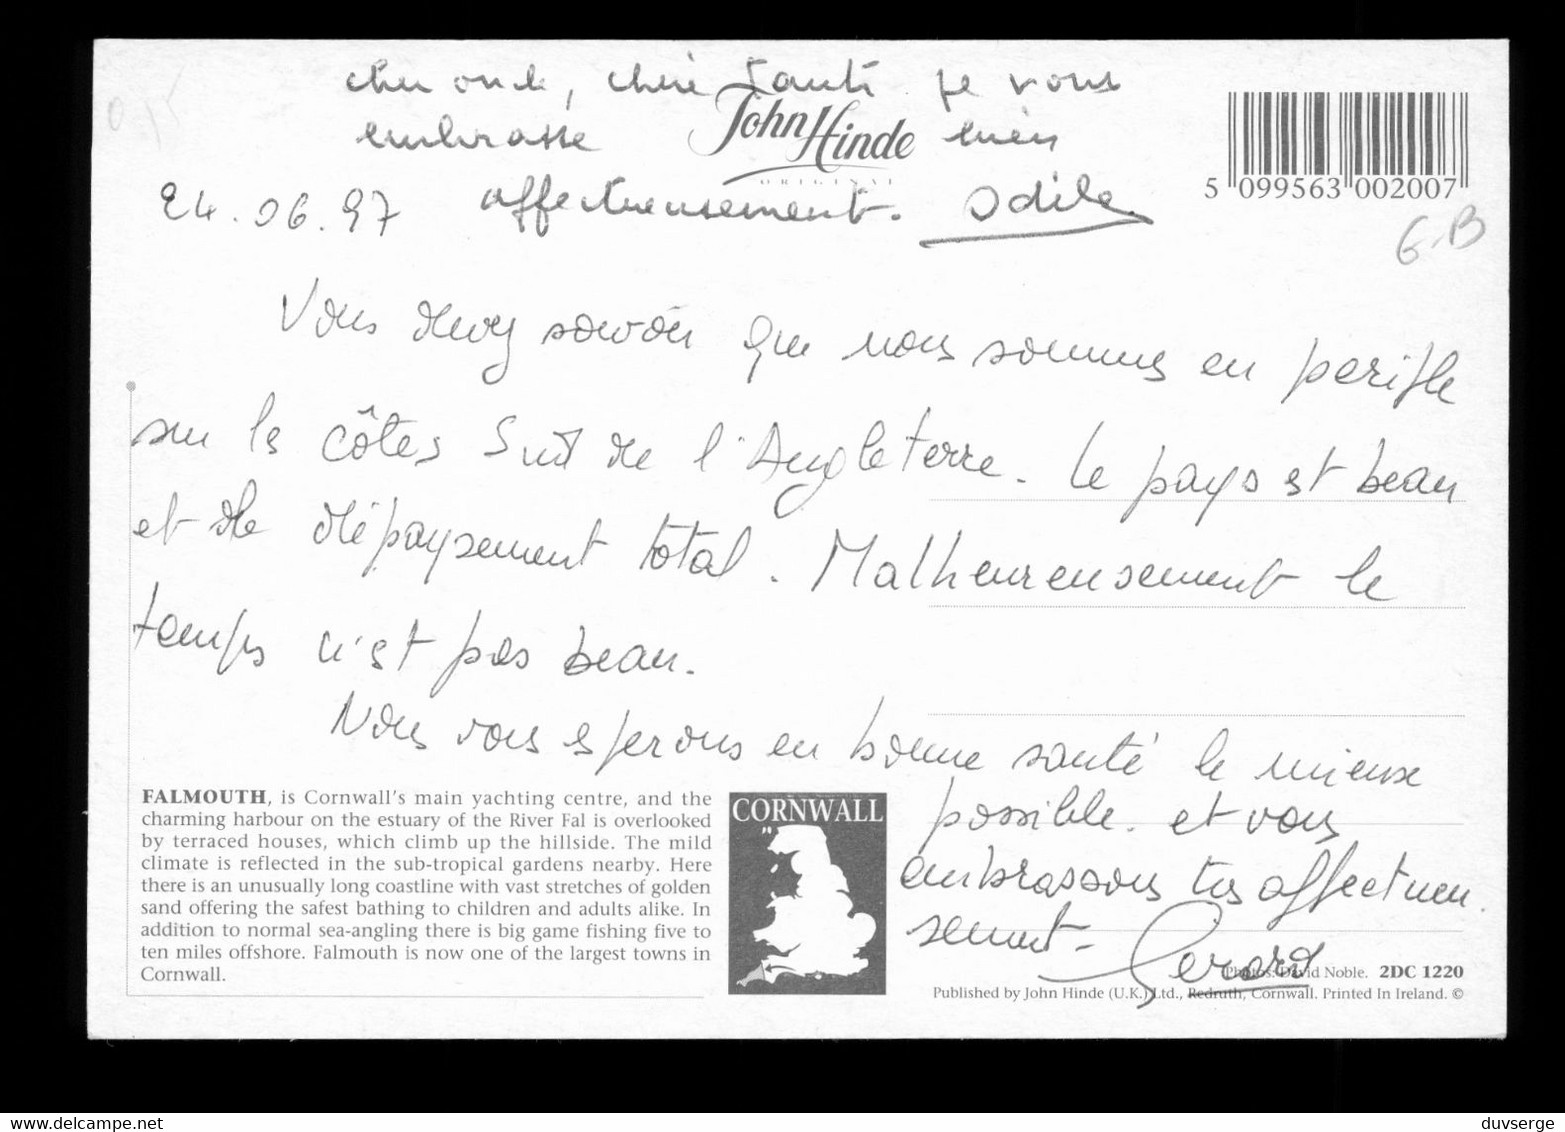 cher oncle, chère Tante je vous
embrasse bien
John Hinde
ORIGINAL
24.06.97 affectueusement. Odile
5 099563 002007
G.B
Vous devez savoir que nous sommes en periple
sur les côtes Sud de l'Angleterre. Le pays est beau
et de dépaysement total. Malheureusement le
temps n'est pas beau.
Nous vous esperons en bonne santé le mieux
possible. et vous
embrassons tres affectueu
sement.
Gerard
FALMOUTH, is Cornwall's main yachting centre, and the
charming harbour on the estuary of the River Fal is overlooked
by terraced houses, which climb up the hillside. The mild
climate is reflected in the sub-tropical gardens nearby. Here
there is an unusually long coastline with vast stretches of golden
sand offering the safest bathing to children and adults alike. In
addition to normal sea-angling there is big game fishing five to
ten miles offshore. Falmouth is now one of the largest towns in
Cornwall.
CORNWALL
Photos: David Noble. 2DC 1220
Published by John Hinde (U.K.) Ltd., Redruth, Cornwall. Printed In Ireland. ©
delcampe.net
duvserge